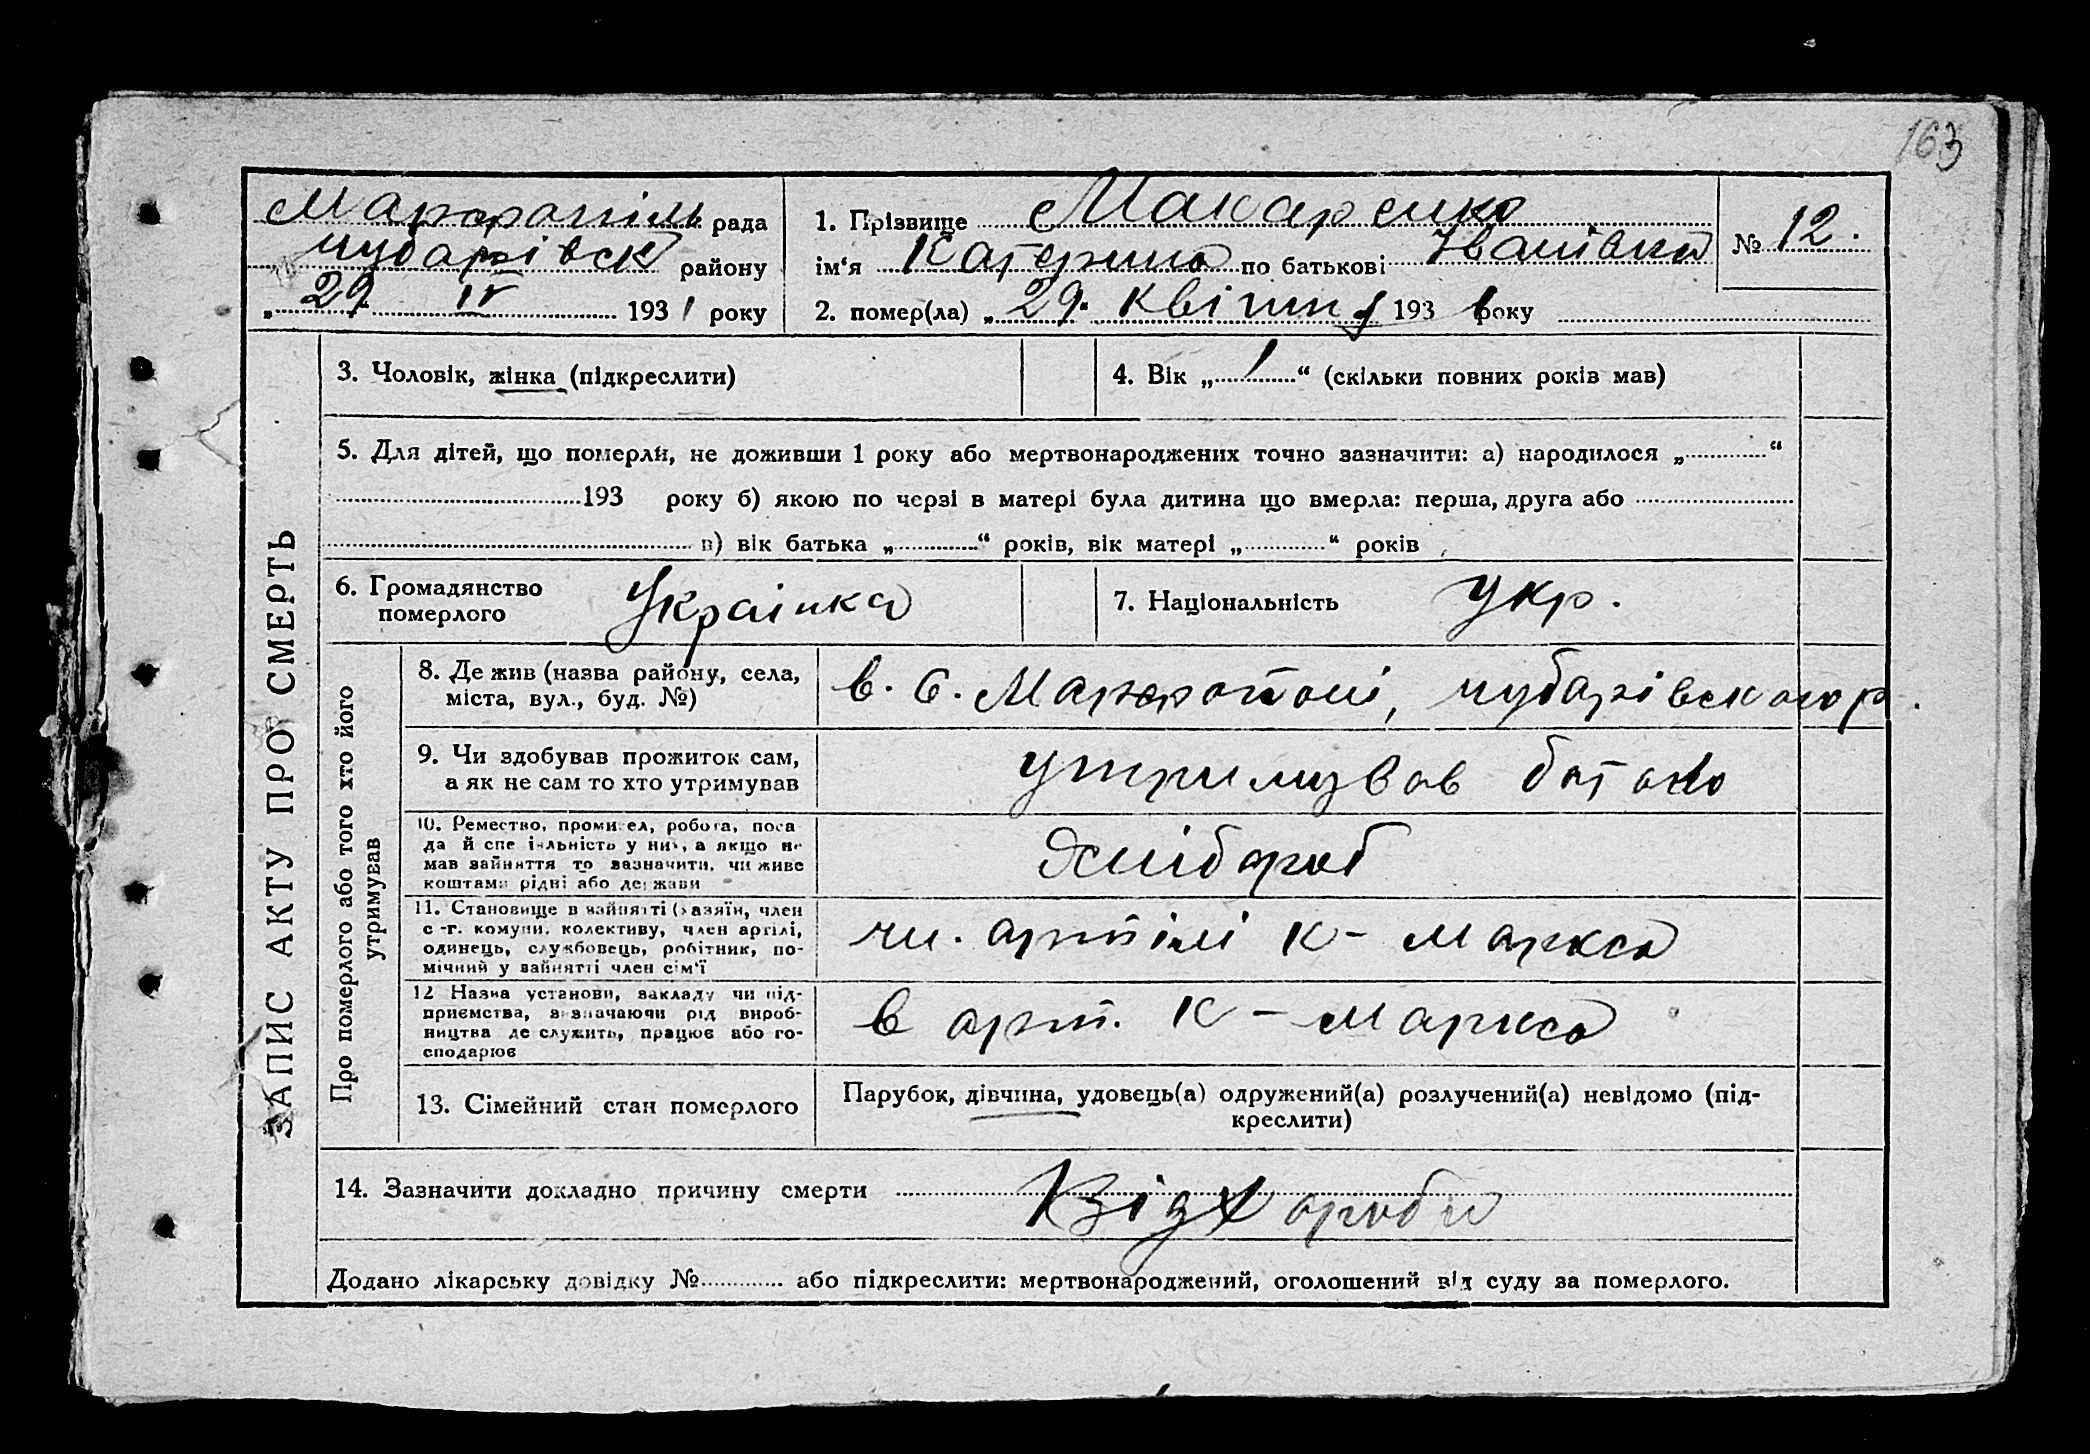 163
Марфопіль рада
чубарівськ району
„ 29 IV 1931 року
1. Прізвище Макаренко
ім‘я Катерина по батькові Іванівна
№ 12.
2. помер(ла) „ 29 “ квітня 1931 року
ЗАПИС АКТУ ПРО СМЕРТЬ
3. Чоловік, жінка (підкреслити)
4. Вік „ 1 “ (скільки повних років мав)
5. Для дітей, що померли, не доживши 1 року або мертвонароджених точно зазначити: а) народилося „ “
193 року б) якою по черзі в матері була дитина що вмерла: перша, друга або
в) вік батька „ “ років, вік матері „ “ років
6. Громадянство
померлого
Українка
7. Національність укр.
Про померлого або того хто його
утримував
8. Де жив (назва району, села,
міста, вул., буд. №)
в. с. Марфополі, чубарівского р.
9. Чи здобував прожиток сам,
а як не сам то хто утримував
утримував батько
10. Ремество, промисел, робота, поса
да й спеціяльність у них, а якщо не
мав зайняття то зазначити, чи живе
коштами рідні або держави
Хлібороб
11. Становище в зайнятті (хазяїн, член
с.-г. комуни, колективу, член артілі,
одинець, службовець, робітник, по-
мічний у зайнятті член сім‘ї
чл. артілі К – Маркса
12 Назва установи, закладу чи під-
приємства, зазначаючи рід вироб-
ництва де служить, працює або го-
сподарює
в арт. К – Маркса
13. Сімейний стан померлого
Парубок, дівчина, удовець(а) одружений(а) розлучений(а) невідомо (під-
креслити)
14. Зазначити докладно причину смерти
Від хороби
Додано лікарську довідку № або підкреслити: мертвонароджений, оголошений від суду за померлого.